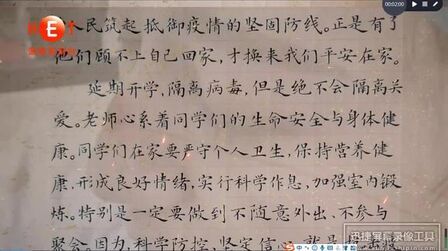 00:02:00
民筑起抵御疫情的坚固防线。正是有了
他们顾不上自己回家,才换来我们平安在家。
延期开学,隔离病毒,但是绝不会隔离关
爱。老师心系着同学们的生命安全与身体健
康。同学们在家要严守个人卫生,保持营养健
康,形成良好情绪,实行科学作息,加强室内锻
炼。特别是一定要做到不随意外出、不参与
聚会。因为,科学防控,坚定信
迅捷屏幕录像工具